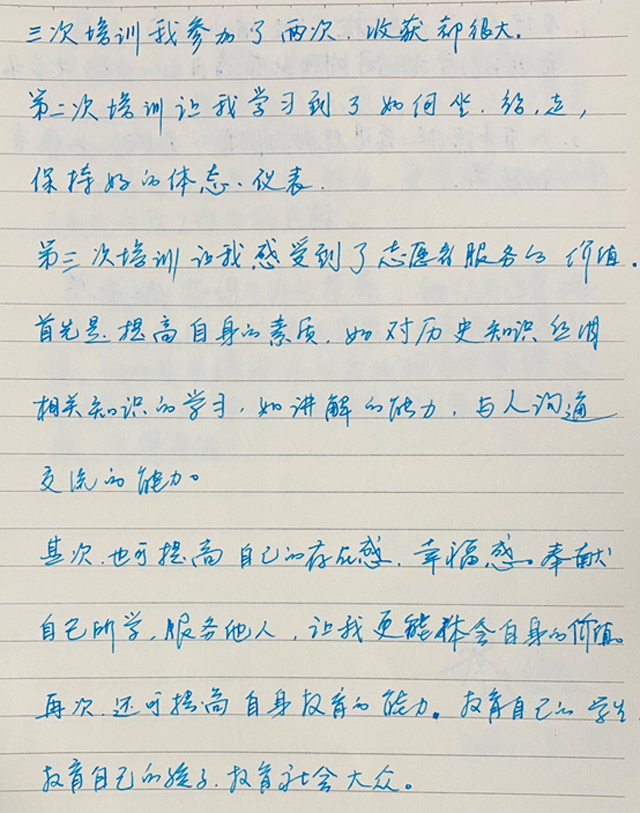 三次培训我参加了两次，收获都很大.
第二次培训让我学习到了如何坐.站,走,
保持好的体态、仪表.
第三次培训让我感受到了志愿者服务的价值.
首先是.提高自身的素质，如对历史知识丝绸
相关知识的学习，如讲解的能力，与人沟通
交流的能力。
其次.也可提高自己的存在感，幸福感。奉献
自己所学，服务他人，让我更能体会自身的价值。
再次.还可提高自身教育的能力。教育自己的学生
教育自己的孩子.教育社会大众。